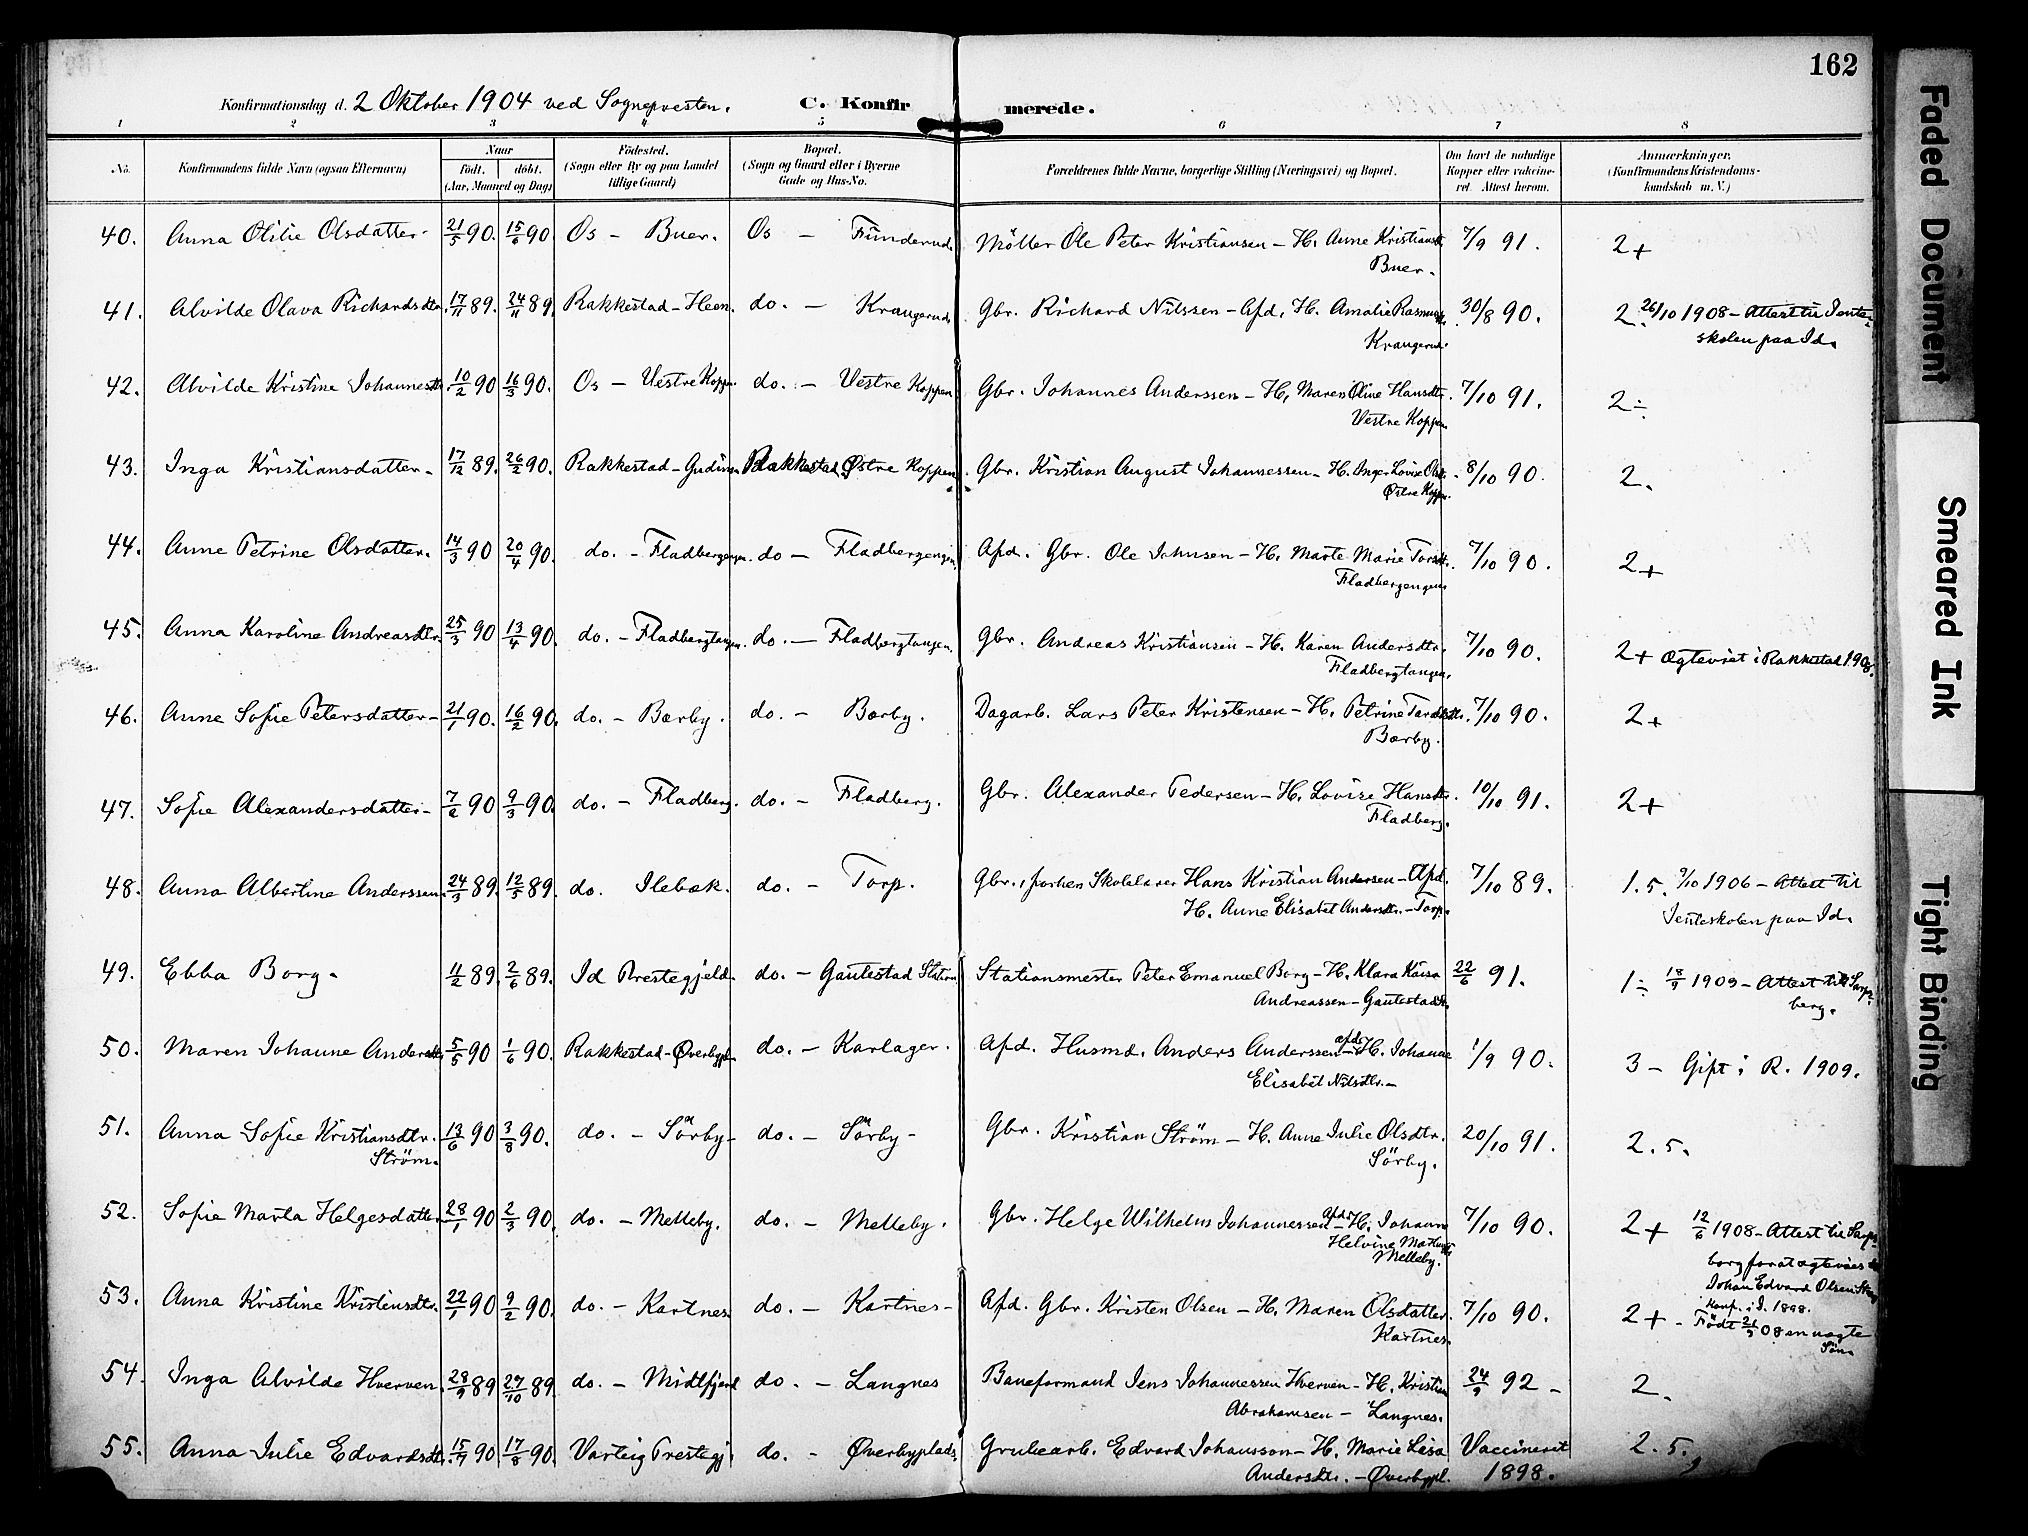 162
Konfirmationsdag d. 2 Oktober 1904 ved Sognepresten. C. Konfirmerede.
1 2 3 4 5 6 7 8
No. Konfirmandens fulde Navn (ogsaa Efternavn) Naar født. døbt. (Aar, Maaned og Dag) Fødested. (Sogn eller By og paa Landet tillige Gaard) Bopæl. (Sogn og Gaard eller i Byerne Gade og Hus-No. Forældrenes fulde Navne, borgerlige Stilling (Næringsvei) og Bopæl. Om havt de naturlige Kopper eller vakcineret. Attest herom. Anmærkninger. (Konfirmandens Kristendomskundskab m. V.)
40. Anna Otilie Olsdatter. 21/5 90. 15/6 90 Os – Buer. Os – Funderud. Möller Ole Peter Kristiansen – H. Anne 7/9 91. 2+
Buer.
41. Alvilde Olava Richardsdtr. 17/11 89. 24/11 89. Rakkestad – Heen. do. – Krangerud. Gbr. Richard Nilssen – Afd. H. Amalie 30/8 90. 2. 26/10 1908 – Attest til Jenteskolen paa Id.
Krangerud.
42. Alvilde Kristine Johannesdtr. 10/2 90 16/3 90. Os – Vestre Koppen. do. – Vestre Koppen Gbr. Johannes Anderssen – H. Maren Oline Hansdtr. 7/10 91. 2÷
Vestre Koppen
43. Inga Kristiansdatter – 17/12 89. 26/2 90. Rakkestad – Rakkestad Østre Koppen. Gbr. Kristian August Johannessen – H. Inger Lovise 8/10 90. 2.
Østre Koppen.
44. Anne Petrine Olsdatter. 14/3 90 20/4 90. do. – Fladbergengen. do – Fladbergengen Afd. Gbr. Ole Johnsen – H. Marte Marie 7/10 90. 2+
Fladbergengen
45. Anna Karoline Andreasdtr. 25/3 90 13/4 90. do. – Fladbergtangen. do. – Fladbergtangen. Gbr. Andreas Kristiansen – H. Karen Andersdtr. 7/10 90. 2+ Ægteviet i Rakkestad
Fladbergtangen.
46. Anne Sofie Petersdatter – 21/1 90. 16/2 90. do. – Bærby. do. – Bærby. Dagarb. Lars Peter Kristensen – H. Petrine 7/10 90. 2+
Bærby.
47. Sofie Alexandersdatter – 7/2 90 9/3 90. do. – Fladberg. do. – Fladberg. Gbr. Alexander Pedersen – H. Lovise Hansdtr. 10/10 91. 2+
Fladberg.
48. Anna Albertine Anderssen. 24/3 89. 12/5 89. do. Ilebæk. do. – Torp. Gbr., forhen Skolelærer Hans Kristian Andersen – Afd. 7/10 89. 1.5. 3/10 1906 – Attest til
H. Anne Elisabet Andersdtr. – Torp. Jenteskolen paa Id.
49. Ebba Borg. 11/2 89. 2/6 89. Id Prestegjeld. do. – Gautestad Station Stationsmester Peter Emanuel Borg – H. Klara Kaisa 22/6 91. 1÷ 18/9 1909 – Attest til Sarpsberg.
Andreassen – Gautestad
50. Maren Johanne Andersdtr. 5/5 90 1/6 90. Rakkestad – Øverbypl. do. – Karlager. Afd. Husmd. Anders Anderssen – afd. H. Johanne 1/9 90. 3 – Gift i R. 1909.
Elisabet Nilsdtr. –
51. Anna Sofie Kristiansdtr. 13/6 90 3/8 90. do. – Sörby – do. – Sörby – Gbr. Kristian Ström – H. Anne Julie Olsdtr. 20/10 91. 2.5.
Ström. Sörby.
52. Sofie Marta Helgesdatter 28/1 90 2/3 90. do. – Melleby. do. – Melleby. Gbr. Helge Wilhelm Johannessen – afd. H. Johanne 7/10 90. 2+ 12/6 1908 – Attest til Sarpsborg for at ægtevies
Helvine
Melleby. Johan Edvard Olsen
Konf. i I. 1898.
53. Anna Kristine Kristensdtr. 22/1 90 9/2 90. do. – Kartnes do. – Kartnes – Afd. Gbr. Kristen Olsen – H. Maren Olsdatter. 7/10 90. 2+ – Født 08 en uægte
Kartnes. Søn.
54. Inga Alvilde Hverven. 28/9 89 27/10 89. do. – Midtfjeld do. – Langnes Baneformand Jens Johannessen Hverven – H. Kristine 24/9 92 – 2.
Abrahamsen – Langnes.
55. Anna Julie Edvardsdtr. 15/7 90 17/8 90. Varteig Prestegj. do. – Øverbyplads. Grubearb. Edvard Johansson – H. Marie Lisa Vaccineret 2.5.
Andersdtr. – Øverbypl. 1898.
Faded Document
Smeared Ink
Tight Binding